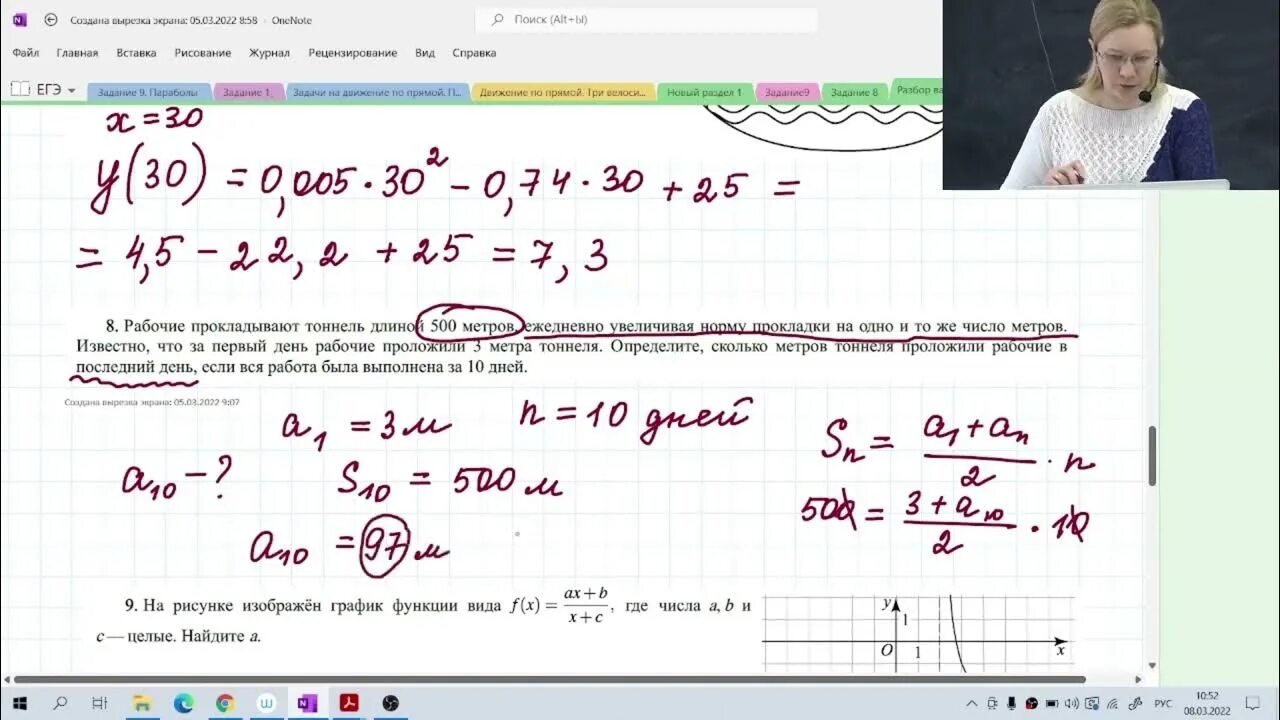 Создана вырезка экрана: 05.03.2022 8:58 - OneNote
Поиск (Alt+Ы)
Файл Главная Вставка Рисование Журнал Рецензирование Вид Справка
ЕГЭ Задание 9. Параболы Задание 1 Задачи на движение по прямой. П... Движение по прямой. Три велоси... Новый раздел 1 Задание9 Задание 8 Разбор ва
x = 30
y(30) = 0,005 · 30² − 0,74 · 30 + 25 =
= 4,5 − 22,2 + 25 = 7,3
8. Рабочие прокладывают тоннель длиной 500 метров, ежедневно увеличивая норму прокладки на одно и то же число метров.
Известно, что за первый день рабочие проложили 3 метра тоннеля. Определите, сколько метров тоннеля проложили рабочие в
последний день, если вся работа была выполнена за 10 дней.
Создана вырезка экрана: 05.03.2022 9:07
a₁ = 3 м n = 10 дней
Sₙ = (a₁ + aₙ)/2 · n
a₁₀ − ? S₁₀ = 500 м
500 = (3 + a₁₀)/2 · 10
a₁₀ = 97 м
9. На рисунке изображён график функции вида f(x) = (ax + b)/(x + c), где числа a, b и
c — целые. Найдите a.
y
1
O 1 x
РУС
10:52
08.03.2022